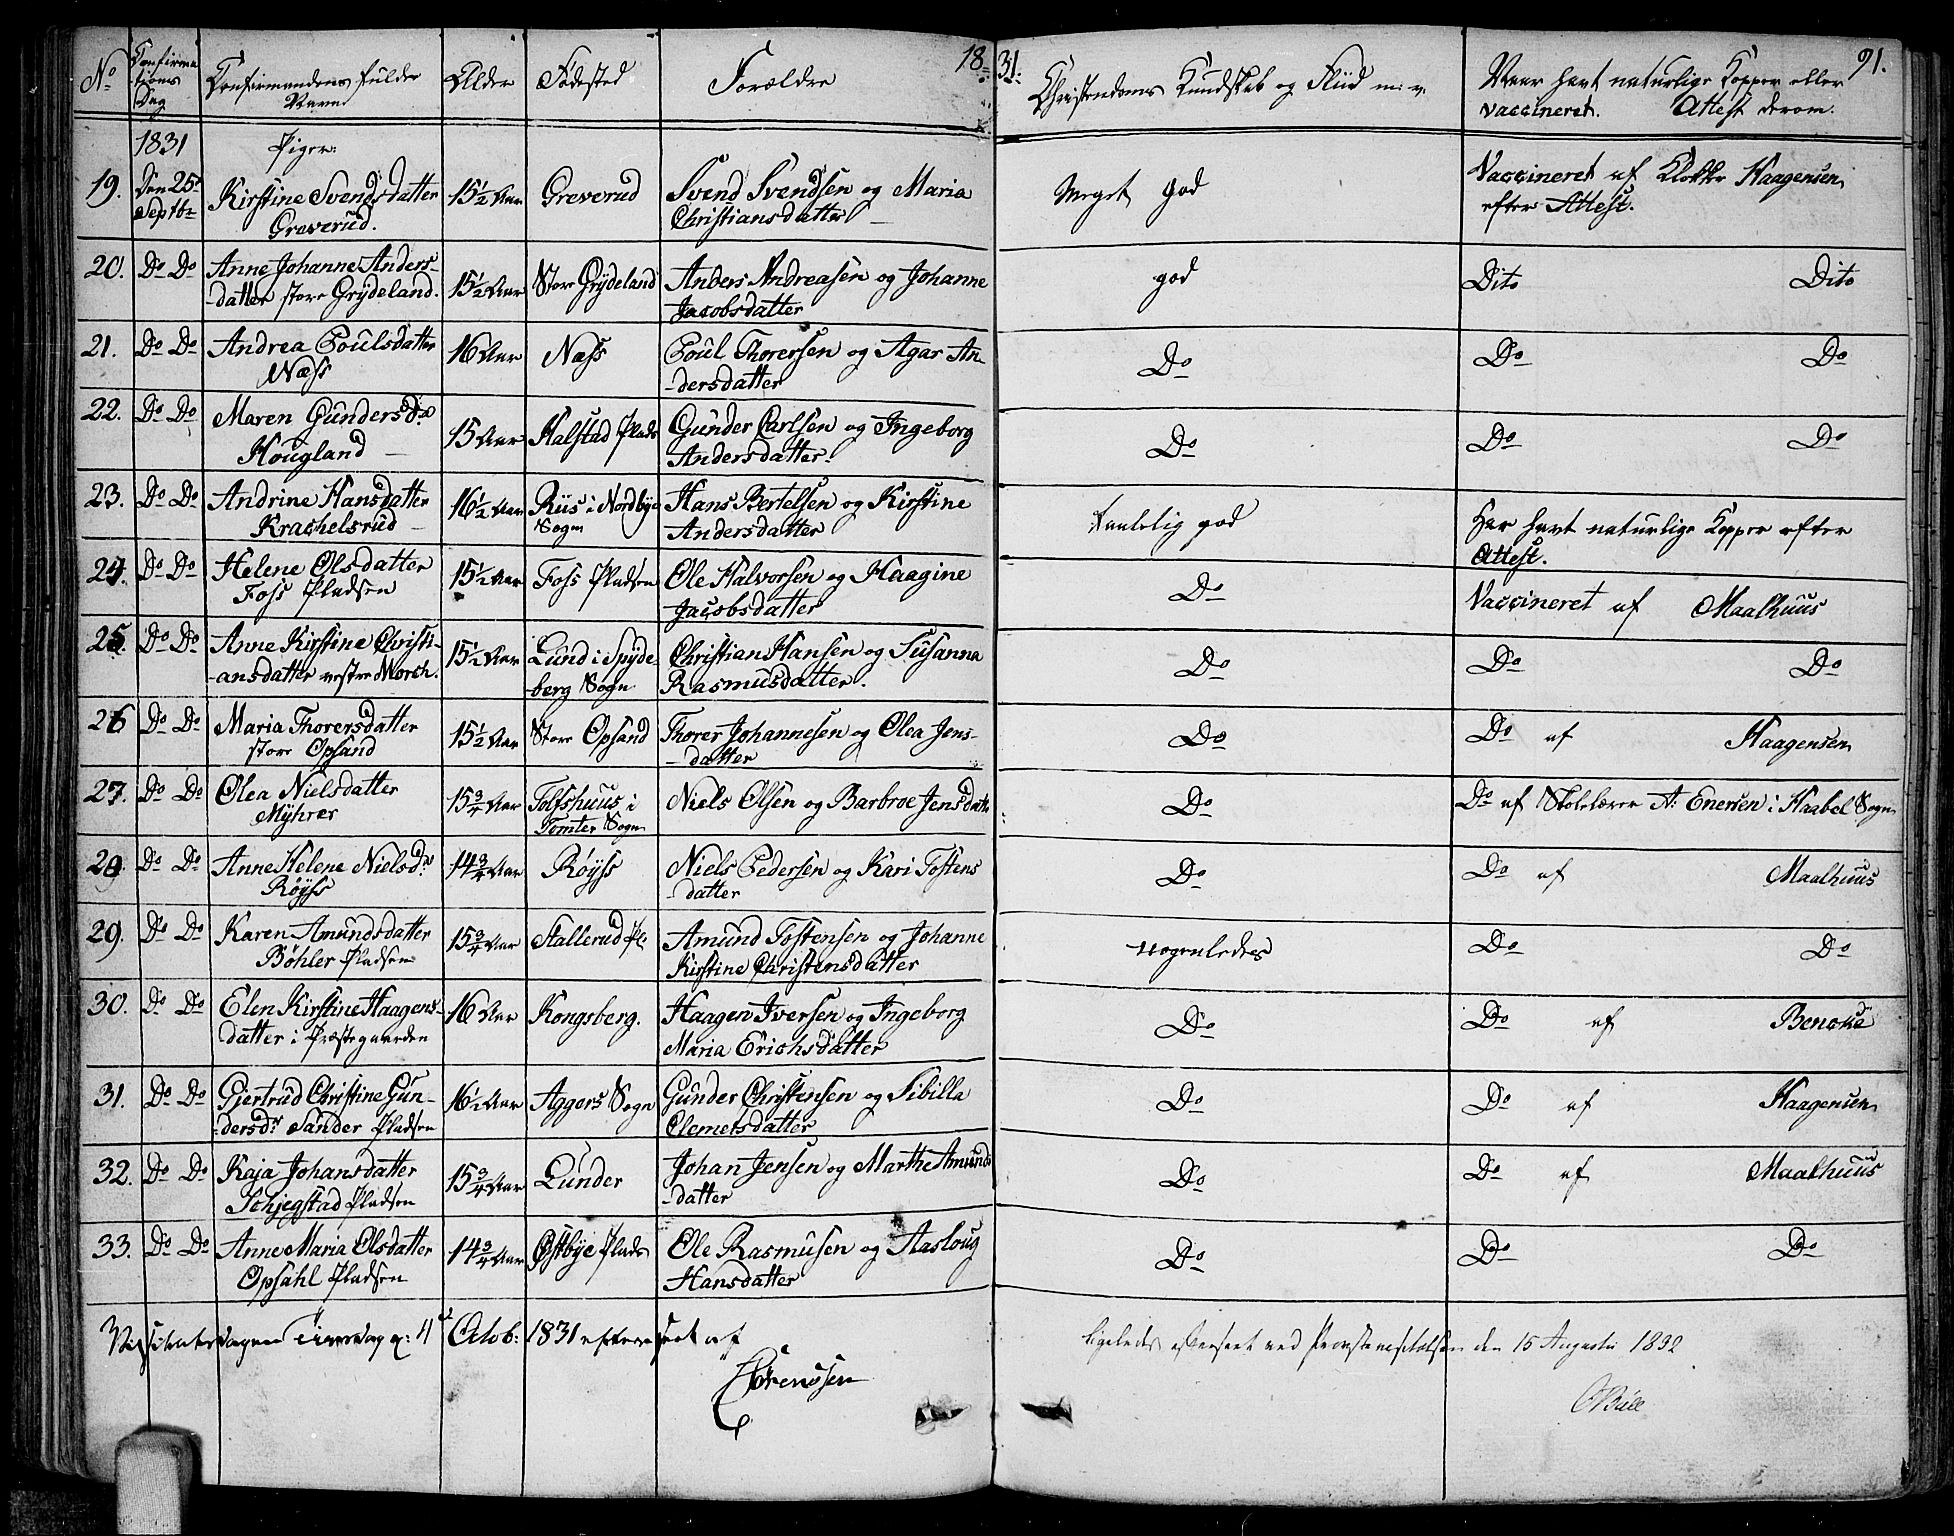 18 31. 91.
No Confirmations Dag Confirmandens fulde Navn Alder Fødested Forældre Christendoms Kundskab og Fliid m: v. Naar havt naturlige Kopper eller vaccineret. Attest derom.
1831 Piger:
19. Den 25de Septbr Kirstine Svendsdatter Greverud. 15 1/2 Aar Greverud Svend Svendsen og Maria Christiansdatter Meget god Vaccineret af Klokker Haagensen efter Attest.
20. Do Do Anne Johanne Anders-
-datter store Grydeland. 15 1/2 Aar Store Grydeland Anders Andreasen og Johanne Jacobsdatter god Dito Dito
21. Do Do Andrea Poulsdatter Næss 16 Aar Næss Poul Thorersen og Agar An-
-dersdatter Do Do Do
22. Do Do Maren Gundersdr Hougland 15 Aar Halstad Plads Gunder Carlsen og Ingeborg Andersdatter. Do Do Do
23. Do Do Andrine Hansdatter Krachelsrud 16 1/2 Aar Riis i Nordbye Sogn Hans Bertelsen og Kirstine Andersdatter Taalelig god Har havt naturlige Kopper efter Attest.
24. Do Do Helene Olsdatter Foss Pladsen 15 1/2 Aar Foss Pladsen Ole Halvorsen og Haagine Jacobsdatter Do Vaccineret af Maalhuus
25. Do Do Anne Kirstine Christi-
-ansdatter vestre Morch. 15 1/2 Aar Lund i Spyde-
berg Sogn Christian Hansen og Susanna Rasmusdatter. Do Do Do
26 Do Do Maria Thorersdatter store Opsand 15 1/2 Aar Store Opsand Thorer Johannesen og Olea Jens-
-datter Do Do af Haagensen
27. Do Do Olea Nielsdatter Myhrer 15 3/4 Aar Tolfshuus i Tomter Sogn Niels Olsen og Barbroe Jensdatr Do Do af Skolelærer A: Enersen i Haabel Sogn
28. Do Do Anne Helene Nielsdr Røyss 14 3/4 Aar Røyss Niels Pedersen og Kari Tostens
-datter Do Do af Maalhuus
29. Do Do Karen Amundsdatter Bøhler Pladsen 15 3/4 Aar Stallerud Pl. Amund Tostensen og Johanne Kirstine Christensdatter nogenledes Do Do
30. Do Do Elen Kirstine Haagens-
datter i Præstegaarden 16 Aar Kongsberg. Haagen Iversen og Ingeborg Maria Erichsdatter Do Do af Beneke
31. Do Do Gjertrud Christine Gun-
-dersdr Sander Pladsen 16 1/2 Aar Aggers Sogn Gunder Christensen og Sibilla Clemetsdatter Do Do af Haagensen
32. Do Do Kaja Johansdatter Schjegstad Pladsen 15 3/4 Aar Lunder Johan Jensen og Marthe Amunds
-datter Do Do af Maalhuus
33. Do Do Anne Maria Olsdatter Opsahl Pladsen 14 3/4 Aar Østbye Plads Ole Rasmusen og Aasloug Hansdatter Do Do Do
Visitatsdagen Tiirsdag d: 4de Octob: 1831 efterseet af
Sørenssen
ligeledes efterseet ved Provstevisitatsen den 15 Augustii 1832
OBull